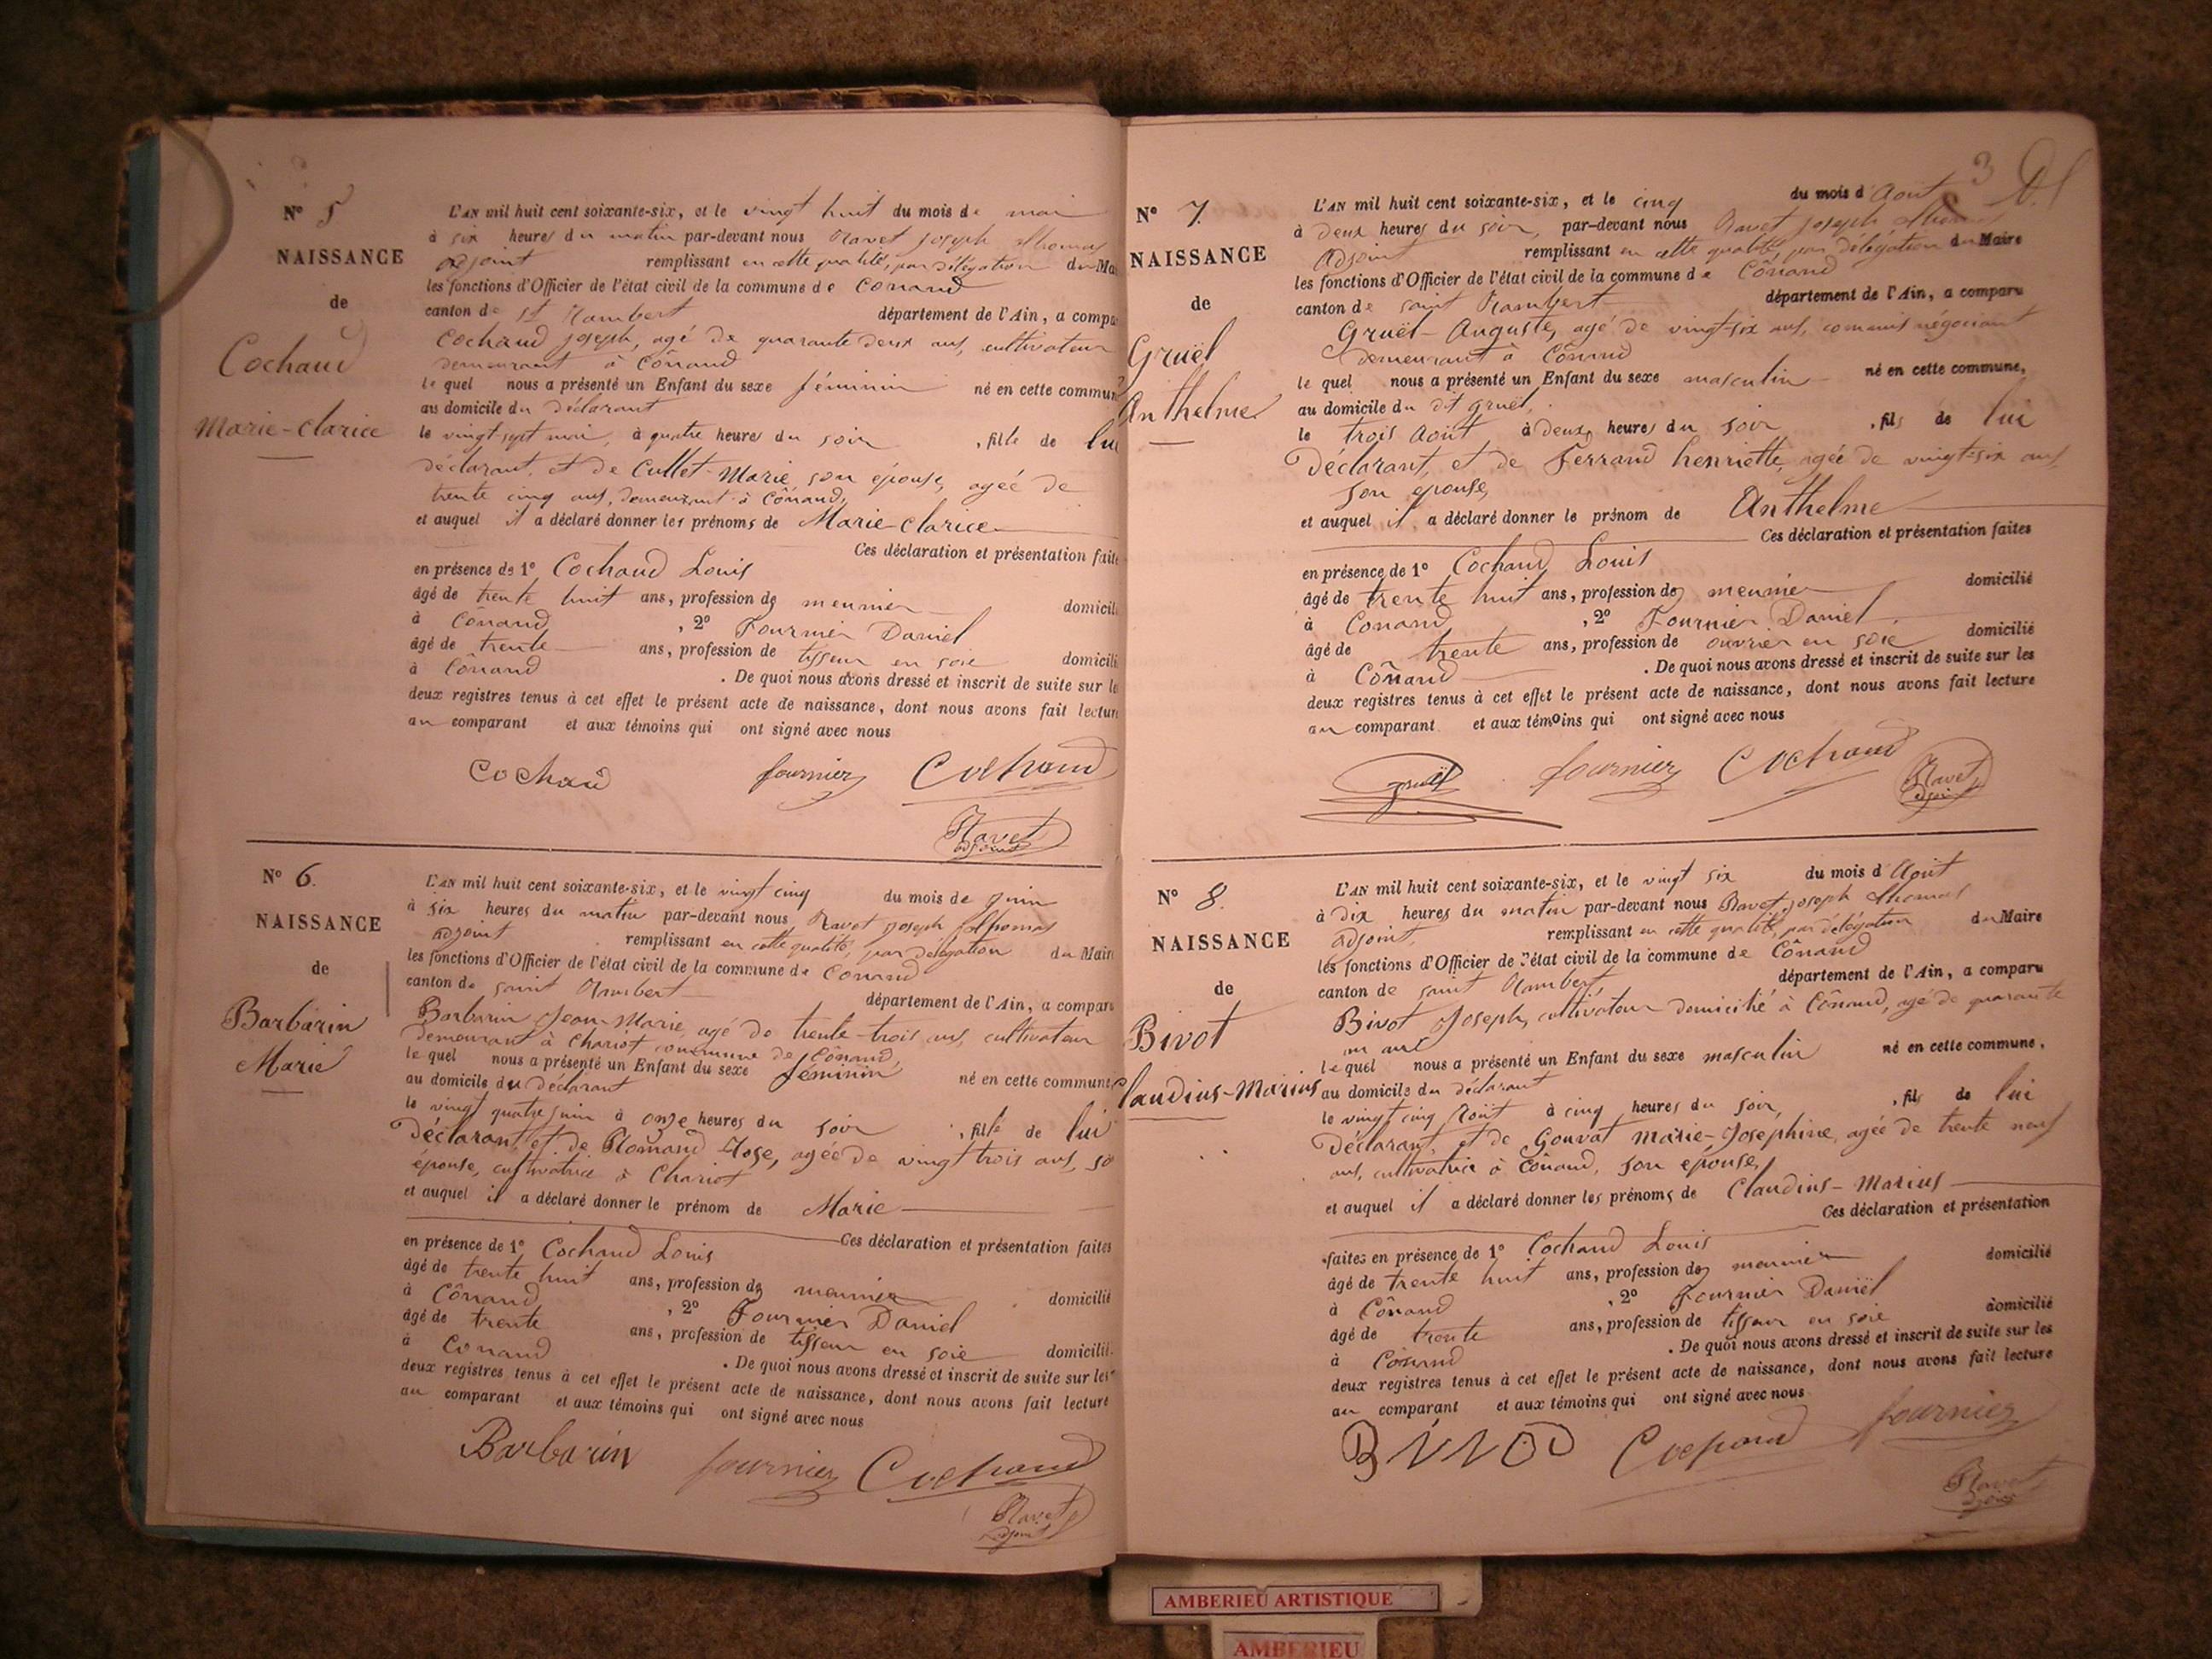 N° 5
NAISSANCE
de
Cochaud
Marie-Clarice
L'AN mil huit cent soixante-six, et le vingt huit du mois de mai
à six heures du matin par-devant nous Ravet Joseph Thomas
adjoint remplissant en cette qualité, par délégation du Mai
les fonctions d'Officier de l'état civil de la commune de Conand
canton de St Rambert département de l'Ain, a compa
Cochaud Joseph, agé de quarante deux ans, cultivateur
demeurant à Cônand
lequel nous a présenté un Enfant du sexe féminin né en cette commun
au domicile du déclarant
le vingt-sept mai, à quatre heures du soir, fille de lui
déclarant, et de Cullet Marie, son épouse, agée de
trente cinq ans, demeurant à Cônand,
et auquel il a déclaré donner les prénoms de Marie-Clarice
Ces déclaration et présentation faite
en présence de 1° Cochaud Louis
âgé de trente huit ans, profession de meunier domicili
à Cônand, 2° Fournier Daniel
âgé de trente ans, profession de tisseur en soie domicili
à Cônand. De quoi nous avons dressé et inscrit de suite sur le
deux registres tenus à cet effet le présent acte de naissance, dont nous avons fait lectur
au comparant et aux témoins qui ont signé avec nous
Cochaud fournier Cochaud
Ravet
adjoint
N° 6.
NAISSANCE
de
Barbarin
Marie
L'AN mil huit cent soixante-six, et le vingt cinq du mois de juin
à six heures du matin par-devant nous Ravet Joseph Thomas
adjoint remplissant en cette qualité, par délégation du Maire
les fonctions d'Officier de l'état civil de la commune de Conand
canton de saint Rambert département de l'Ain, a comparu
Barbarin Jean-Marie, agé de trente-trois ans, cultivateur
demeurant à Chariot commune de Cônand,
lequel nous a présenté un Enfant du sexe féminin né en cette commune
au domicile du déclarant
le vingt quatre juin à onze heures du soir, fille de lui
déclarant, et de Romand Rose, agée de vingt trois ans, so
épouse, cultivatrice à Chariot
et auquel il a déclaré donner le prénom de Marie
Ces déclaration et présentation faites
en présence de 1° Cochaud Louis
âgé de trente huit ans, profession de meunier domicilié
à Cônand, 2° Fournier Daniel
âgé de trente ans, profession de tisseur en soie domicilié
à Conand. De quoi nous avons dressé et inscrit de suite sur les
deux registres tenus à cet effet le présent acte de naissance, dont nous avons fait lecture
au comparant et aux témoins qui ont signé avec nous
Barbarin fournier Cochaud
Ravet
adjoint
3
N° 7.
NAISSANCE
de
Gruël
Anthelme
L'AN mil huit cent soixante-six, et le cinq du mois d'Août
à deux heures du soir, par-devant nous Ravet Joseph Thomas
Adjoint remplissant en cette qualité, par délégation du Maire
les fonctions d'Officier de l'état civil de la commune de Cônand
canton de saint Rambert département de l'Ain, a comparu
Gruël Auguste, agé de vingt-six ans, commis négociant
demeurant à Cônand
lequel nous a présenté un Enfant du sexe masculin né en cette commune,
au domicile du dit gruël,
le trois Août à deux heures du soir, fils de lui
déclarant, et de Ferrand henriette, agée de vingt-six ans,
son épouse,
et auquel il a déclaré donner le prénom de Anthelme
Ces déclaration et présentation faites
en présence de 1° Cochaud Louis
âgé de trente huit ans, profession de meunier domicilié
à Conand, 2° Fournier Daniel
âgé de trente ans, profession de ouvrier en soie domicilié
à Cônand. De quoi nous avons dressé et inscrit de suite sur les
deux registres tenus à cet effet le présent acte de naissance, dont nous avons fait lecture
au comparant et aux témoins qui ont signé avec nous
gruël fournier Cochaud Ravet
adjoint
N° 8.
NAISSANCE
de
Bivot
Claudius-Marius
L'AN mil huit cent soixante-six, et le vingt six du mois d'Août
à dix heures du matin par-devant nous Ravet Joseph Thomas
adjoint, remplissant en cette qualité, par délégation du Maire
les fonctions d'Officier de l'état civil de la commune de Cônand
canton de saint Rambert, département de l'Ain, a comparu
Bivot Joseph, cultivateur domicilié à Cônand, agé de quarante
un ans
lequel nous a présenté un Enfant du sexe masculin né en cette commune,
au domicile du déclarant
le vingt cinq Août à cinq heures du soir, fils de lui
déclarant, et de Gouvat Marie-Josephine, agée de trente neuf
ans, cultivatrice à Cônand, son épouse,
et auquel il a déclaré donner les prénoms de Claudius-Marius
Ces déclaration et présentation
faites en présence de 1° Cochaud Louis
âgé de trente huit ans, profession de meunier domicilié
à Cônand, 2° Fournier Daniël
âgé de trente ans, profession de tisseur en soie domicilié
à Cônand. De quoi nous avons dressé et inscrit de suite sur les
deux registres tenus à cet effet le présent acte de naissance, dont nous avons fait lecture
au comparant et aux témoins qui ont signé avec nous
Cochaud fournier
Ravet
adjoint
AMBERIEU ARTISTIQUE
AMBERIEU